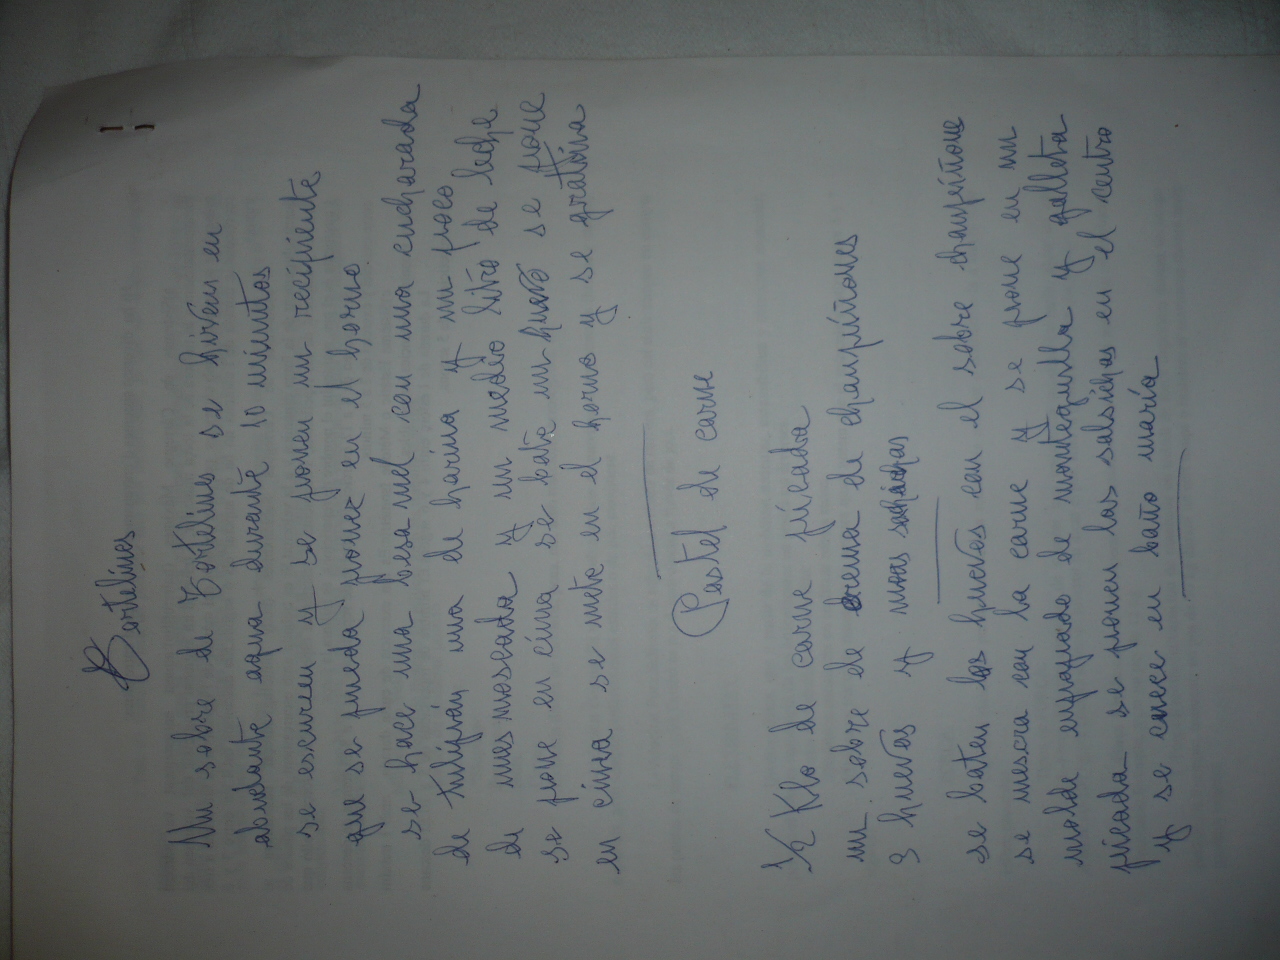 Tortelines
Un sobre de Tortelines se hiven en
abundante aqua durante 10 minutos
se escuren y se ponen un recipiente
que se pueda poner en el horno
se hace una besamel con una cucharada
de tulipán una de harina y un poco
de nuesmoscada y un medio litro de leche
se pone en cima se bate un huevo se pone
en cima se mete en el horno y se gratina
Pastel de carne
1/2 Klo de carne picada
un sobre de crema de chanpiñones
3 huevos y unas salsichas
se baten los huevos con el sobre chanpiñones
se mescra con la carne y se pone en un
molde enpapado de montequilla y galleta
picada se ponen las salsichas en el centro
y se cuece en baño maría